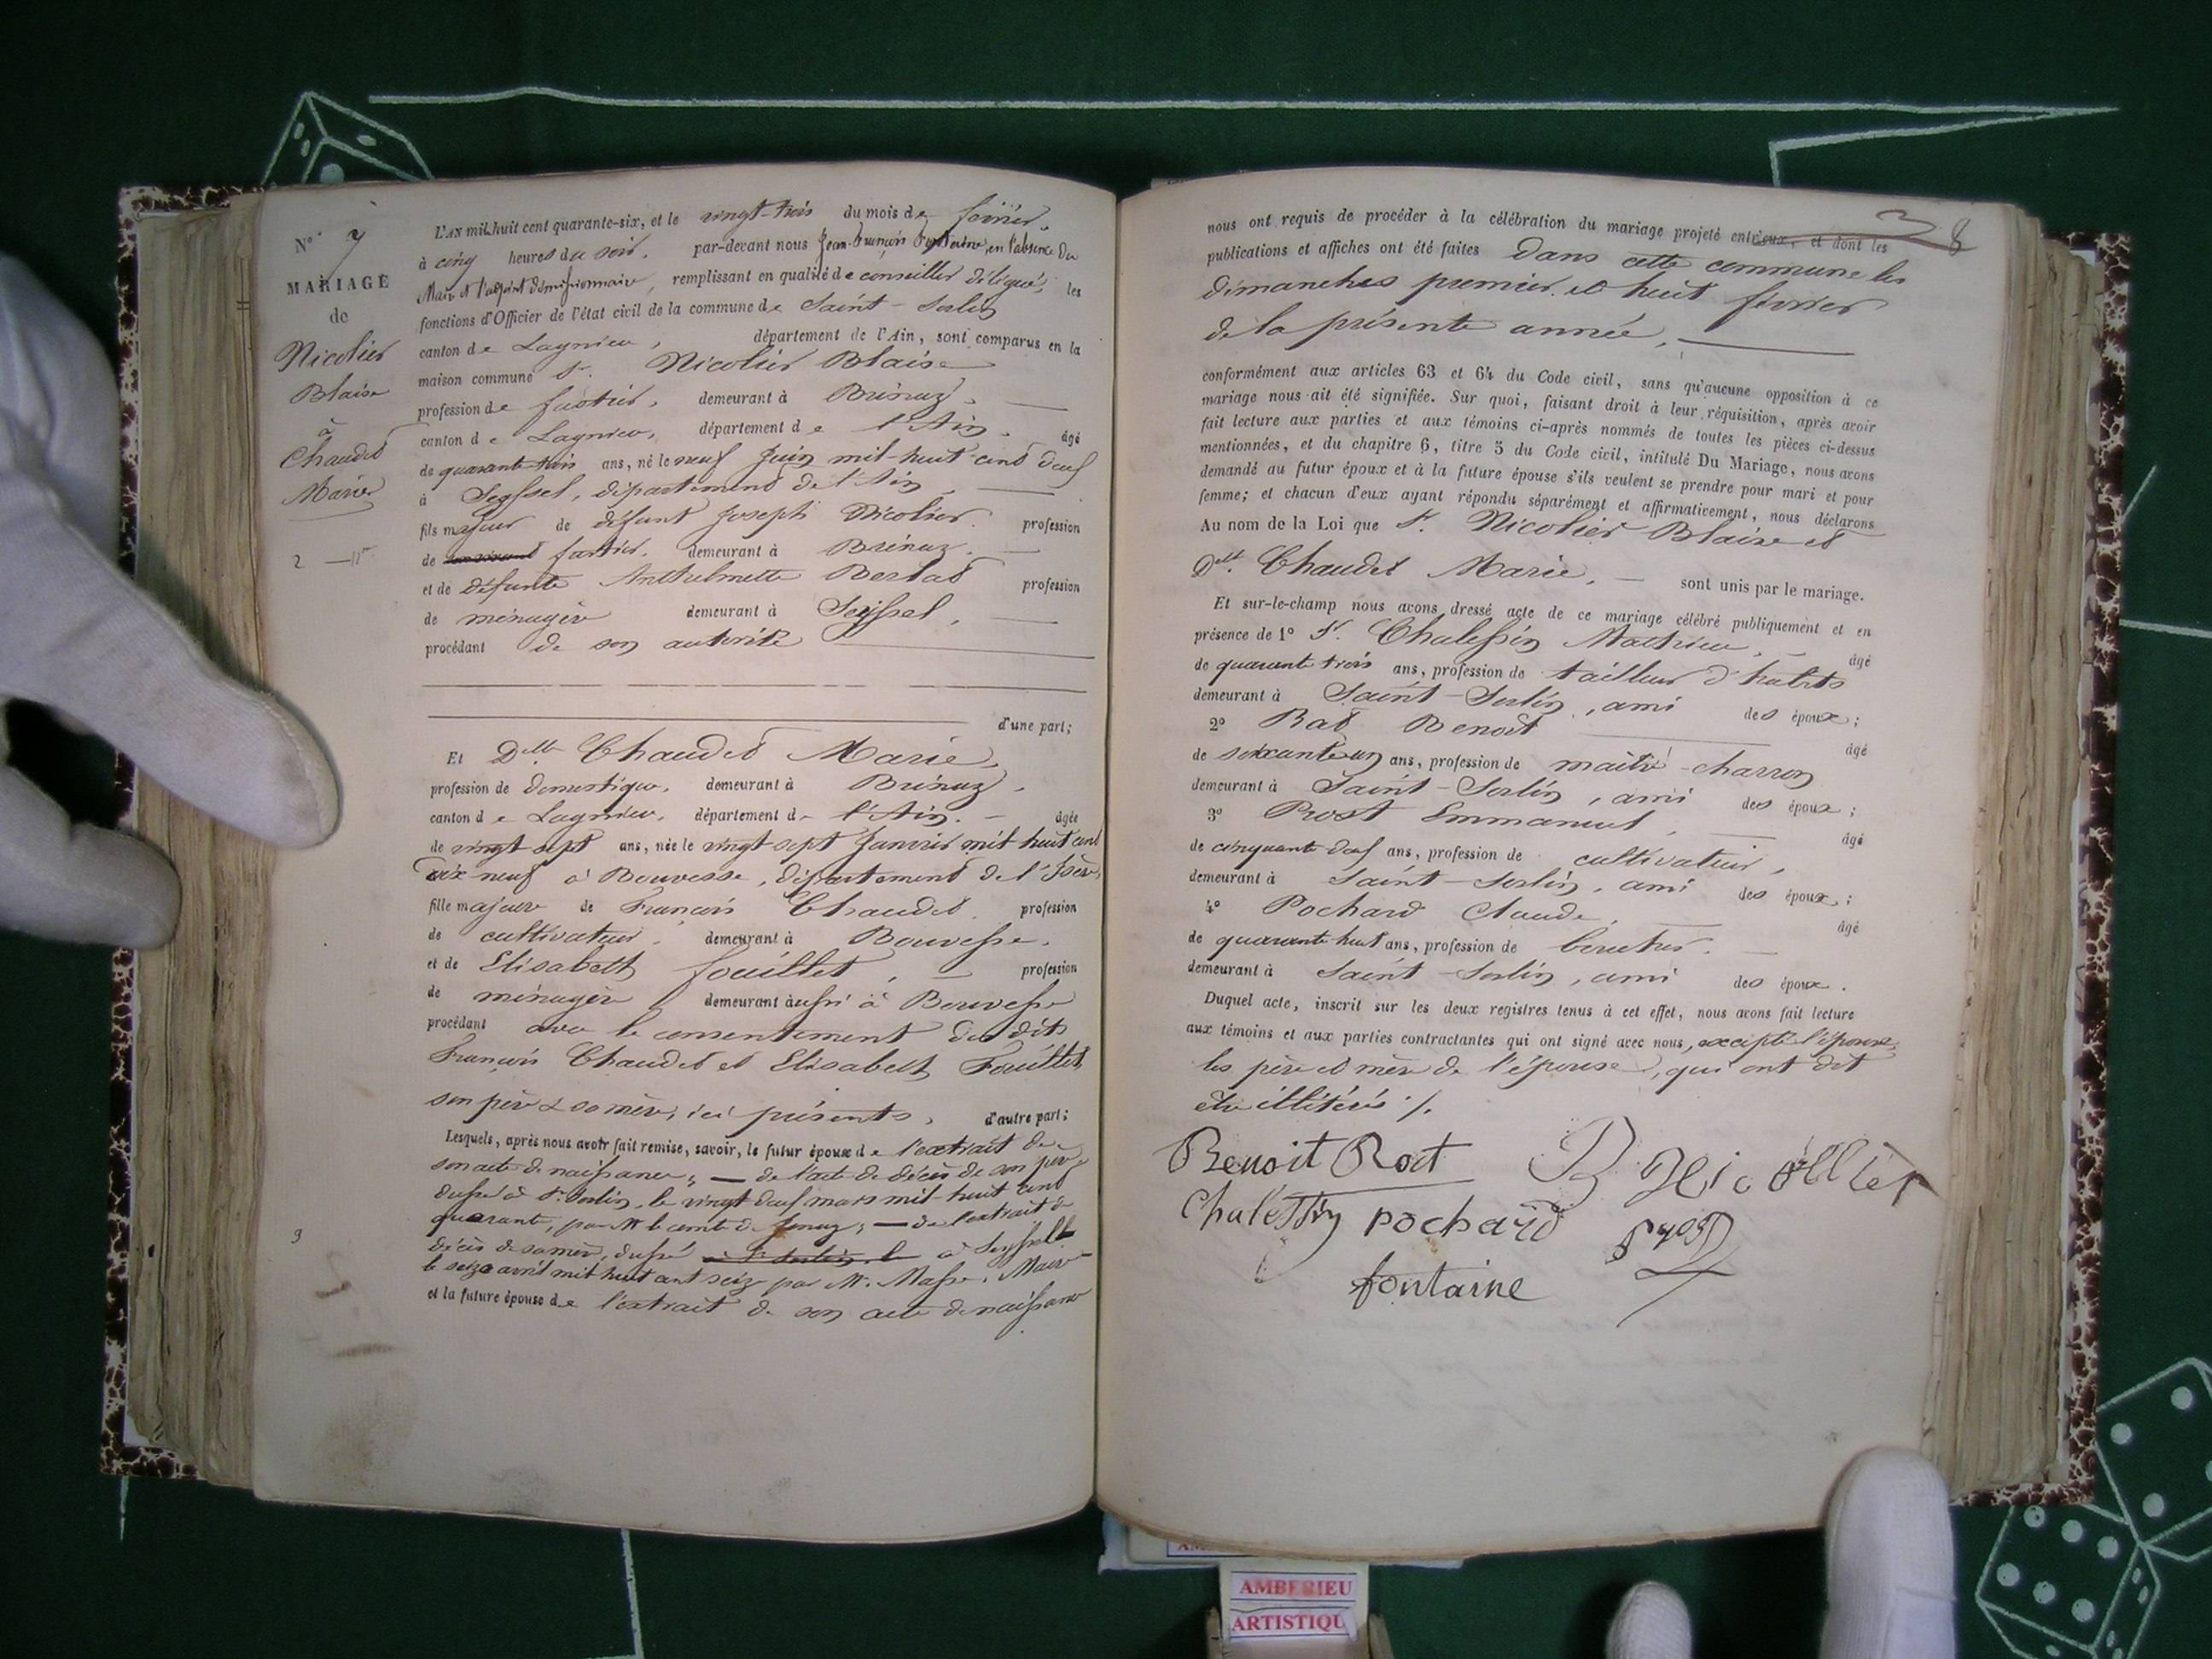 N° 7
MARIAGE
de
Nicolier
Blaise
à
Chaudet
Marie
2
3
L'AN mil huit cent quarante-six, et le vingt-trois du mois de février,
à cinq heures du soir, par-devant nous Jean-François Fontaine, en l'absence du
Maire et l'adjoint démissionnaire, remplissant en qualité de conseiller délégué, les
fonctions d'Officier de l'état civil de la commune de Saint-Sorlin
canton de Lagnieu, département de l'Ain, sont comparus en la
maison commune Sr. Nicolier Blaise
profession de demeurant à
canton de Lagnieu, département de l'Ain. âgé
de quarante-trois ans, né le neuf Juin mil-huit-cent deux
à Seyssel, département de l'Ain
fils majeur de défunt Joseph Nicolier. profession
de demeurant à
et de défunte Anthelmette profession
de ménagère demeurant à Seyssel,
procédant de son autorité
d'une part;
Et Dlle Chaudet Marie,
profession de domestique, demeurant à
canton de Lagnieu, département de l'Ain. âgée
de vingt sept ans, née le vingt sept Janvier mil huit cent
dix neuf à Bouvesse, département de l'Isère,
fille majeure de François Chaudet. profession
de cultivateur, demeurant à Bouvesse.
et de Elisabeth fouillet, profession
de ménagère demeurant aussi à Bouvesse
procédant avec le consentement des dits
François Chaudet et Elisabeth Fouillet
son père & sa mère, ici présents, d'autre part;
Lesquels, après nous avoir fait remise, savoir, le futur époux de l'extrait de
son acte de naissance; — de l'acte de décès de son père
dressé à St. Sorlin, le vingt deux mars mil huit cent
quarante, par Mr le comte de — de l'extrait de
décès de sa mère, dressé à St Sorlin, le à Seyssel
le seize avril mil huit cent seize par Mr. Masse, Maire
et la future épouse de l'extrait de son acte de naissance
38
nous ont requis de procéder à la célébration du mariage projeté entr'eux, et dont les
publications et affiches ont été faites Dans cette commune les
dimanches premier et huit février
de la présente année,
conformément aux articles 63 et 64 du Code civil, sans qu'aucune opposition à ce
mariage nous ait été signifiée. Sur quoi, faisant droit à leur réquisition, après avoir
fait lecture aux parties et aux témoins ci-après nommés de toutes les pièces ci-dessus
mentionnées, et du chapitre 6, titre 5 du Code civil, intitulé Du Mariage, nous avons
demandé au futur époux et à la future épouse s'ils veulent se prendre pour mari et pour
femme; et chacun d'eux ayant répondu séparément et affirmativement, nous déclarons
Au nom de la Loi que Sr. Nicolier Blaise et
Dlle. Chaudet Marie, sont unis par le mariage.
Et sur-le-champ nous avons dressé acte de ce mariage célébré publiquement et en
présence de 1° Sr. Chalessin Mathieu, âgé
de quarante trois ans, profession de tailleur d'habits
demeurant à Saint-Sorlin, ami des époux;
2° Rat Benoît âgé
de soixante un ans, profession de maître-charron
demeurant à Saint-Sorlin, ami des époux;
3° Prost Emmanuel, âgé
de cinquante deux ans, profession de cultivateur,
demeurant à Saint-Sorlin, ami des époux;
4° Pochard Claude, âgé
de quarante huit ans, profession de
demeurant à Saint-Sorlin, ami des époux.
Duquel acte, inscrit sur les deux registres tenus à cet effet, nous avons fait lecture
aux témoins et aux parties contractantes qui ont signé avec nous, excepté l'épouse,
les père et mère de l'épouse, qui ont dit
être illitérés ./.
Benoit Rat B Nicollier
Chalessin pochard prost
fontaine
AMBERIEU
ARTISTIQU